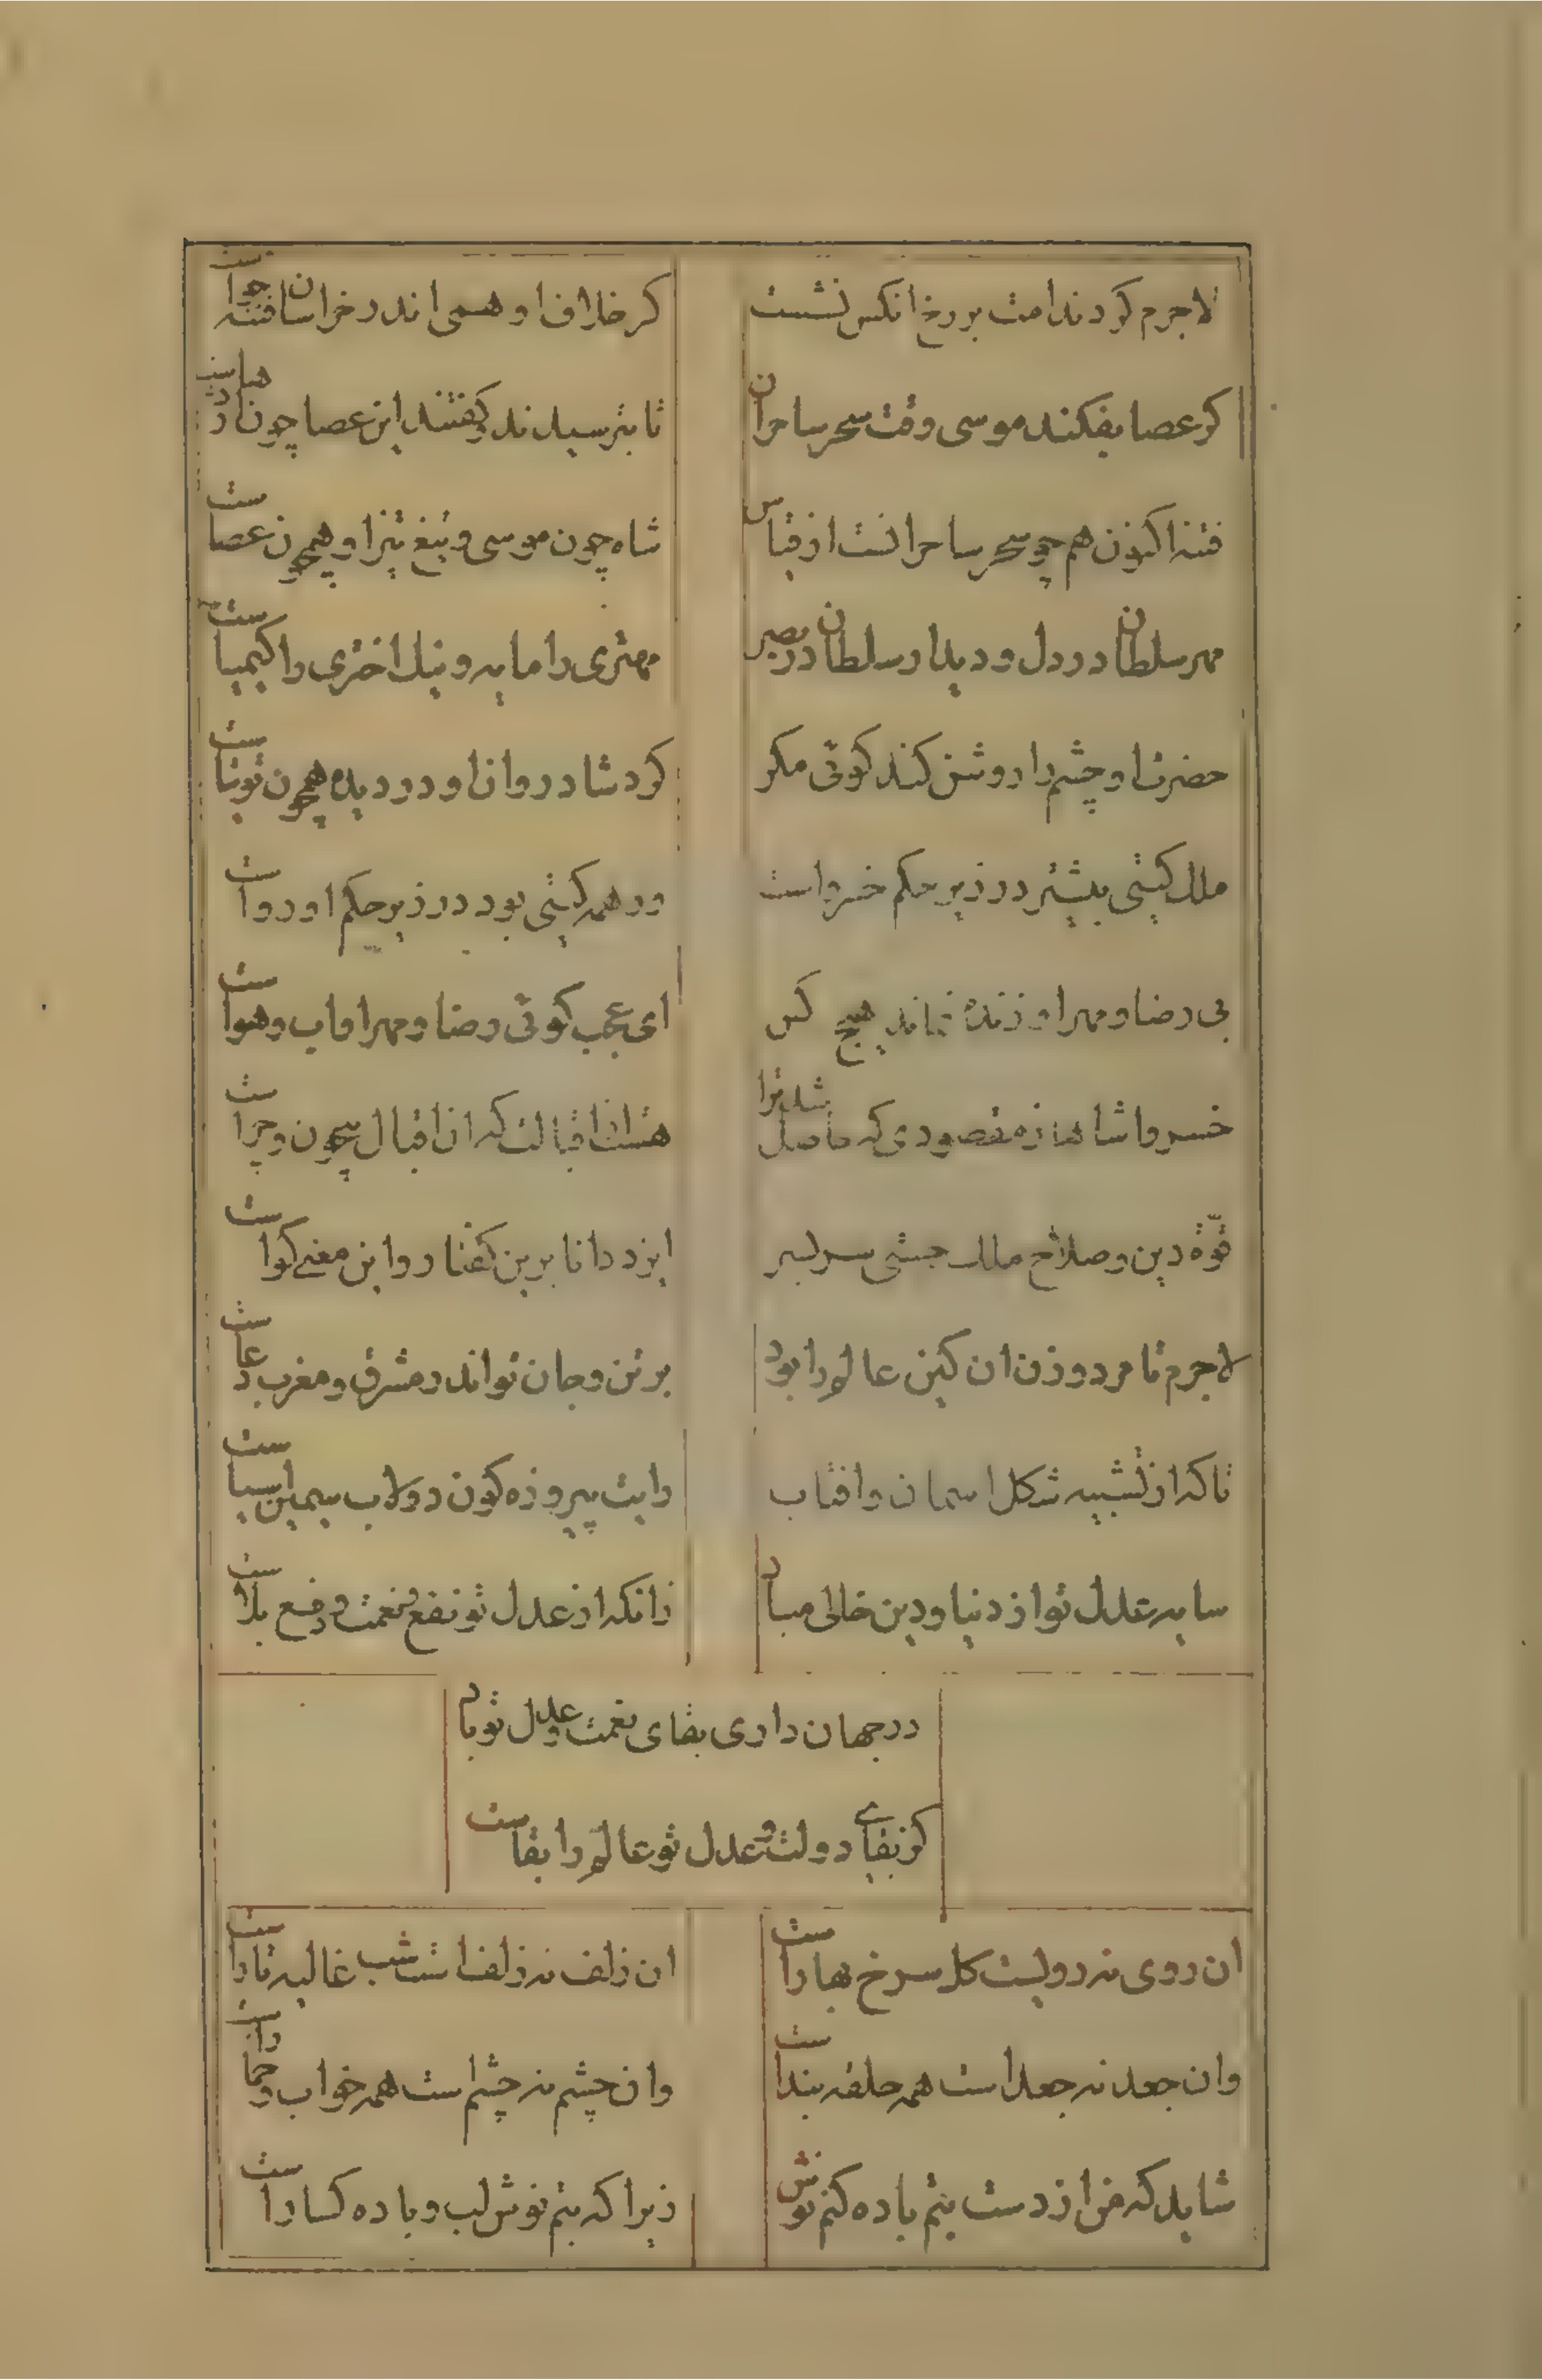 لاجرم کرد ندامت بر رخ انکس نشست
کز خلاف او همی اندر خراسان فتنه خواست
کر عصا بفکند موسی وقت سحر ساحران
تا بترسیدند و کفتند این عصا چون اژدهاست
فتنه اکنون هم چو سحر ساحرانست از قیاس
شاه چون موسی و تیغ تیز او همچون عصاست
مهر سلطان در دل و دیدار سلطان در بصر
مهتری را مایه و نیک اختری را کیمیاست
حضرت او چشم را روشن کند کوئی مکر
کرد شادروان او در دیده همچون توتیاست
ملک کیتی بیشتر در زیر حکم خسرواست
ور همه کیتی بود در زیر حکم او رواست
بی رضا و مهر او زنده نماند هیچ کس
ای عجب کوئی رضا و مهر او اب و هواست
خسروا شاها ز مقصودی که حاصل شد ترا
هست از اقبالت که ان اقبال بیچون و چراست
قوّة دین و صلاح ملک جستی سر بسر
ایزد دانا برین کفتار و این معنی کواست
لاجرم تا مرد و زن ان کین عالم را بود
بر تن و جان تو اندر مشرق و مغرب دعاست
تا که از تشبیه شکل اسمان و افتاب
رایت پیروزه کون دولاب سیمین اسیاست
سایه عدل تو از دنیا و دین خالی مباد
زانکه از عدل تو نفع نعمت و دفع بلاست
در جهان داری بقای نعمت و عدل تو باد
کز بقای دولت و عدل تو عالم را بقاست
ان روی نه رویست کل سرخ بهاراست
ان زلف نه زلف است شب غالیه تاراست
وان جعد نه جعد است همه حلقه بنداست
وان چشم نه چشم است همه خواب و خماراست
شاید که من از دست بتم باده کنم نوش
زیرا که بتم نوش لب و باده کساراست